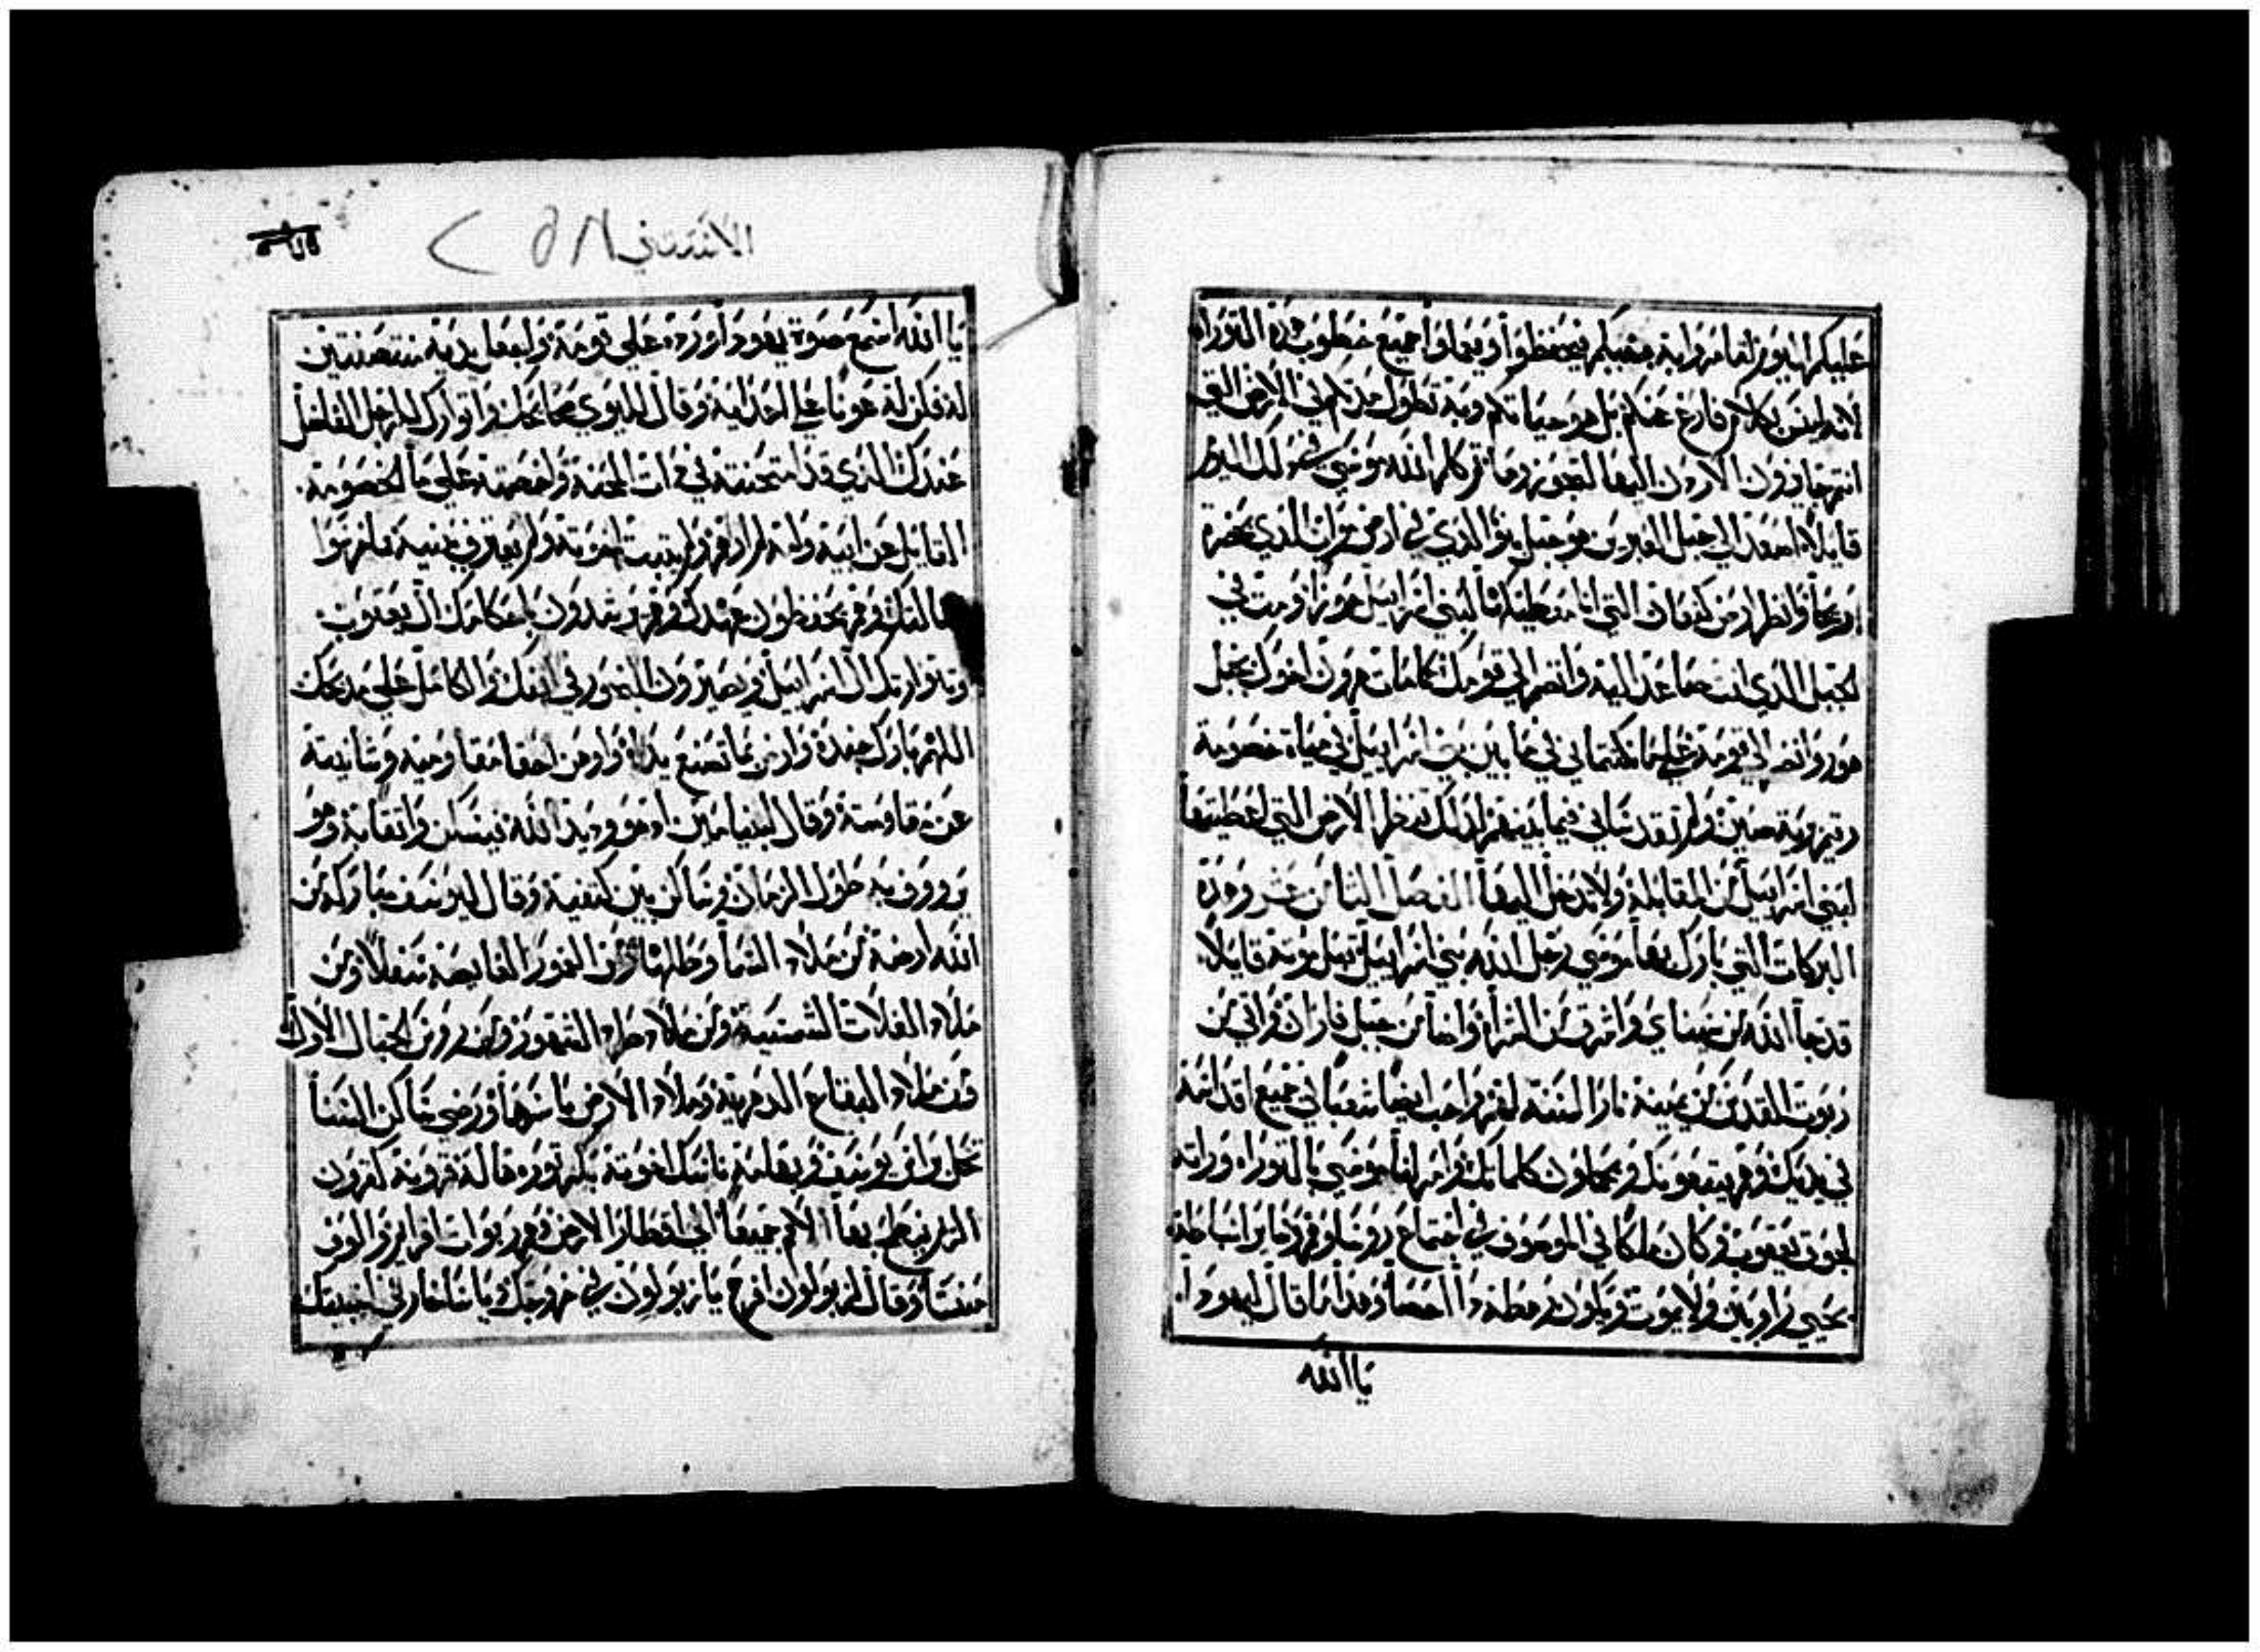 عليكم اليوم لتامروا به بنيكم فيحفظوا ويعملوا جميع خطوب هذه التوراه
لانه ليس بكلام فارغ عنكم بل هو حياتكم وبه تطول مدتكم في الارض التي
انتم جايزون الاردن اليها لتحوزوها ثم كلم الله موسى في ذلك اليوم
قايلا اصعد الي جبل العبريين هو جبل نبو الذي في ارض مواب الذي بحضرة
اريحا وانظر ارض كنعان التي انا معطيها لبني اسراييل حوزا ومت في
الجبل الذي انت صاعد اليه وانضم الي قومك كما مات هرون اخوك بجبل
هور وانضم الي قومه علي ما نكثتما بي في ما بين بني اسراييل في مياه خصومة
رقيم برية صين ولم تقدساني فيما بينهم لذلك تنظر الارض التي اعطيتها
لبني اسراييل من المقابلة ولا تدخل اليها الفصل الثامن عشر وهذه
البركات التي بارك بها موسى رجل الله بني اسراييل قبل موته قايلا
قد جا الله من سيناي واشرق من الشراة واضا من جبل فاران واتي من
ربوت القدس من يمينه نار السنة لهم واحب ايضا شعبا في جميع اقداسه
في يديك وهم يتبعونك ويعملون كلماتك وامرنا موسى بالتوراه وراثه
لجوق يعقوب وكان ملكا في الموصوف في اجتماع روسا وفرد ما بر اسباطه
يحيي راوبين ولا يموت ويكون رهطه ذا احصا وهذا ما قال ليهودا
يا الله
الاستثني
يا الله اسمع صوة يهودا اورده علي قومه واجعل يديه منتصفتين
له فكن له عونا علي اعدايه وقال لليوي صحايحك وانوارك للرجل الفاضل
عندك الذي قد امتحنته في ذات المحنة وخاصمته علي ما الخصومة
القايل عن ابيه وامه لم ارهم ولم يتبت اخوته ولم يعرف بنيه بل لزموا
مقالتك وهم يحفظون عهدك وهم يرشدون باحكامك ال يعقوب
وبتوارتك ال اسراييل ويصيرون البخور في انفك والكامل علي مدبحك
اللهم بارك جنده وارض بما تصنع يداه واوهن احقا مقاوميه وشانيه
عن مقاومته وقال لبنيامين اذ هو وديد الله فيسكن واثقا به وهو
يرووف به طول الزمان وساكن بين كتفيه وقال ليوسف مباركه من
الله ارضه من ملاذ السما وطلها ومن الغمور الغايصة سفلا ومن
ملاذ الغلات الشمسية ومن ملاذ طرد الشهور ومن روس الجبال الاولى
ومن ملاذ البقاع الدهرية وملاذ الارض باسرها ورضي ساكن السنا
تحل براس يوسف وبقامة ناسك اخوته بكر ثوره فله قرونه كقرون
الريم ينطح بها الامم جميعا الي اقطار الارض وهم ربوات افرايم والوف
منسا وقال لزبولون افرح يا زبولون في خروجك ويا يساخار في اخبيتك